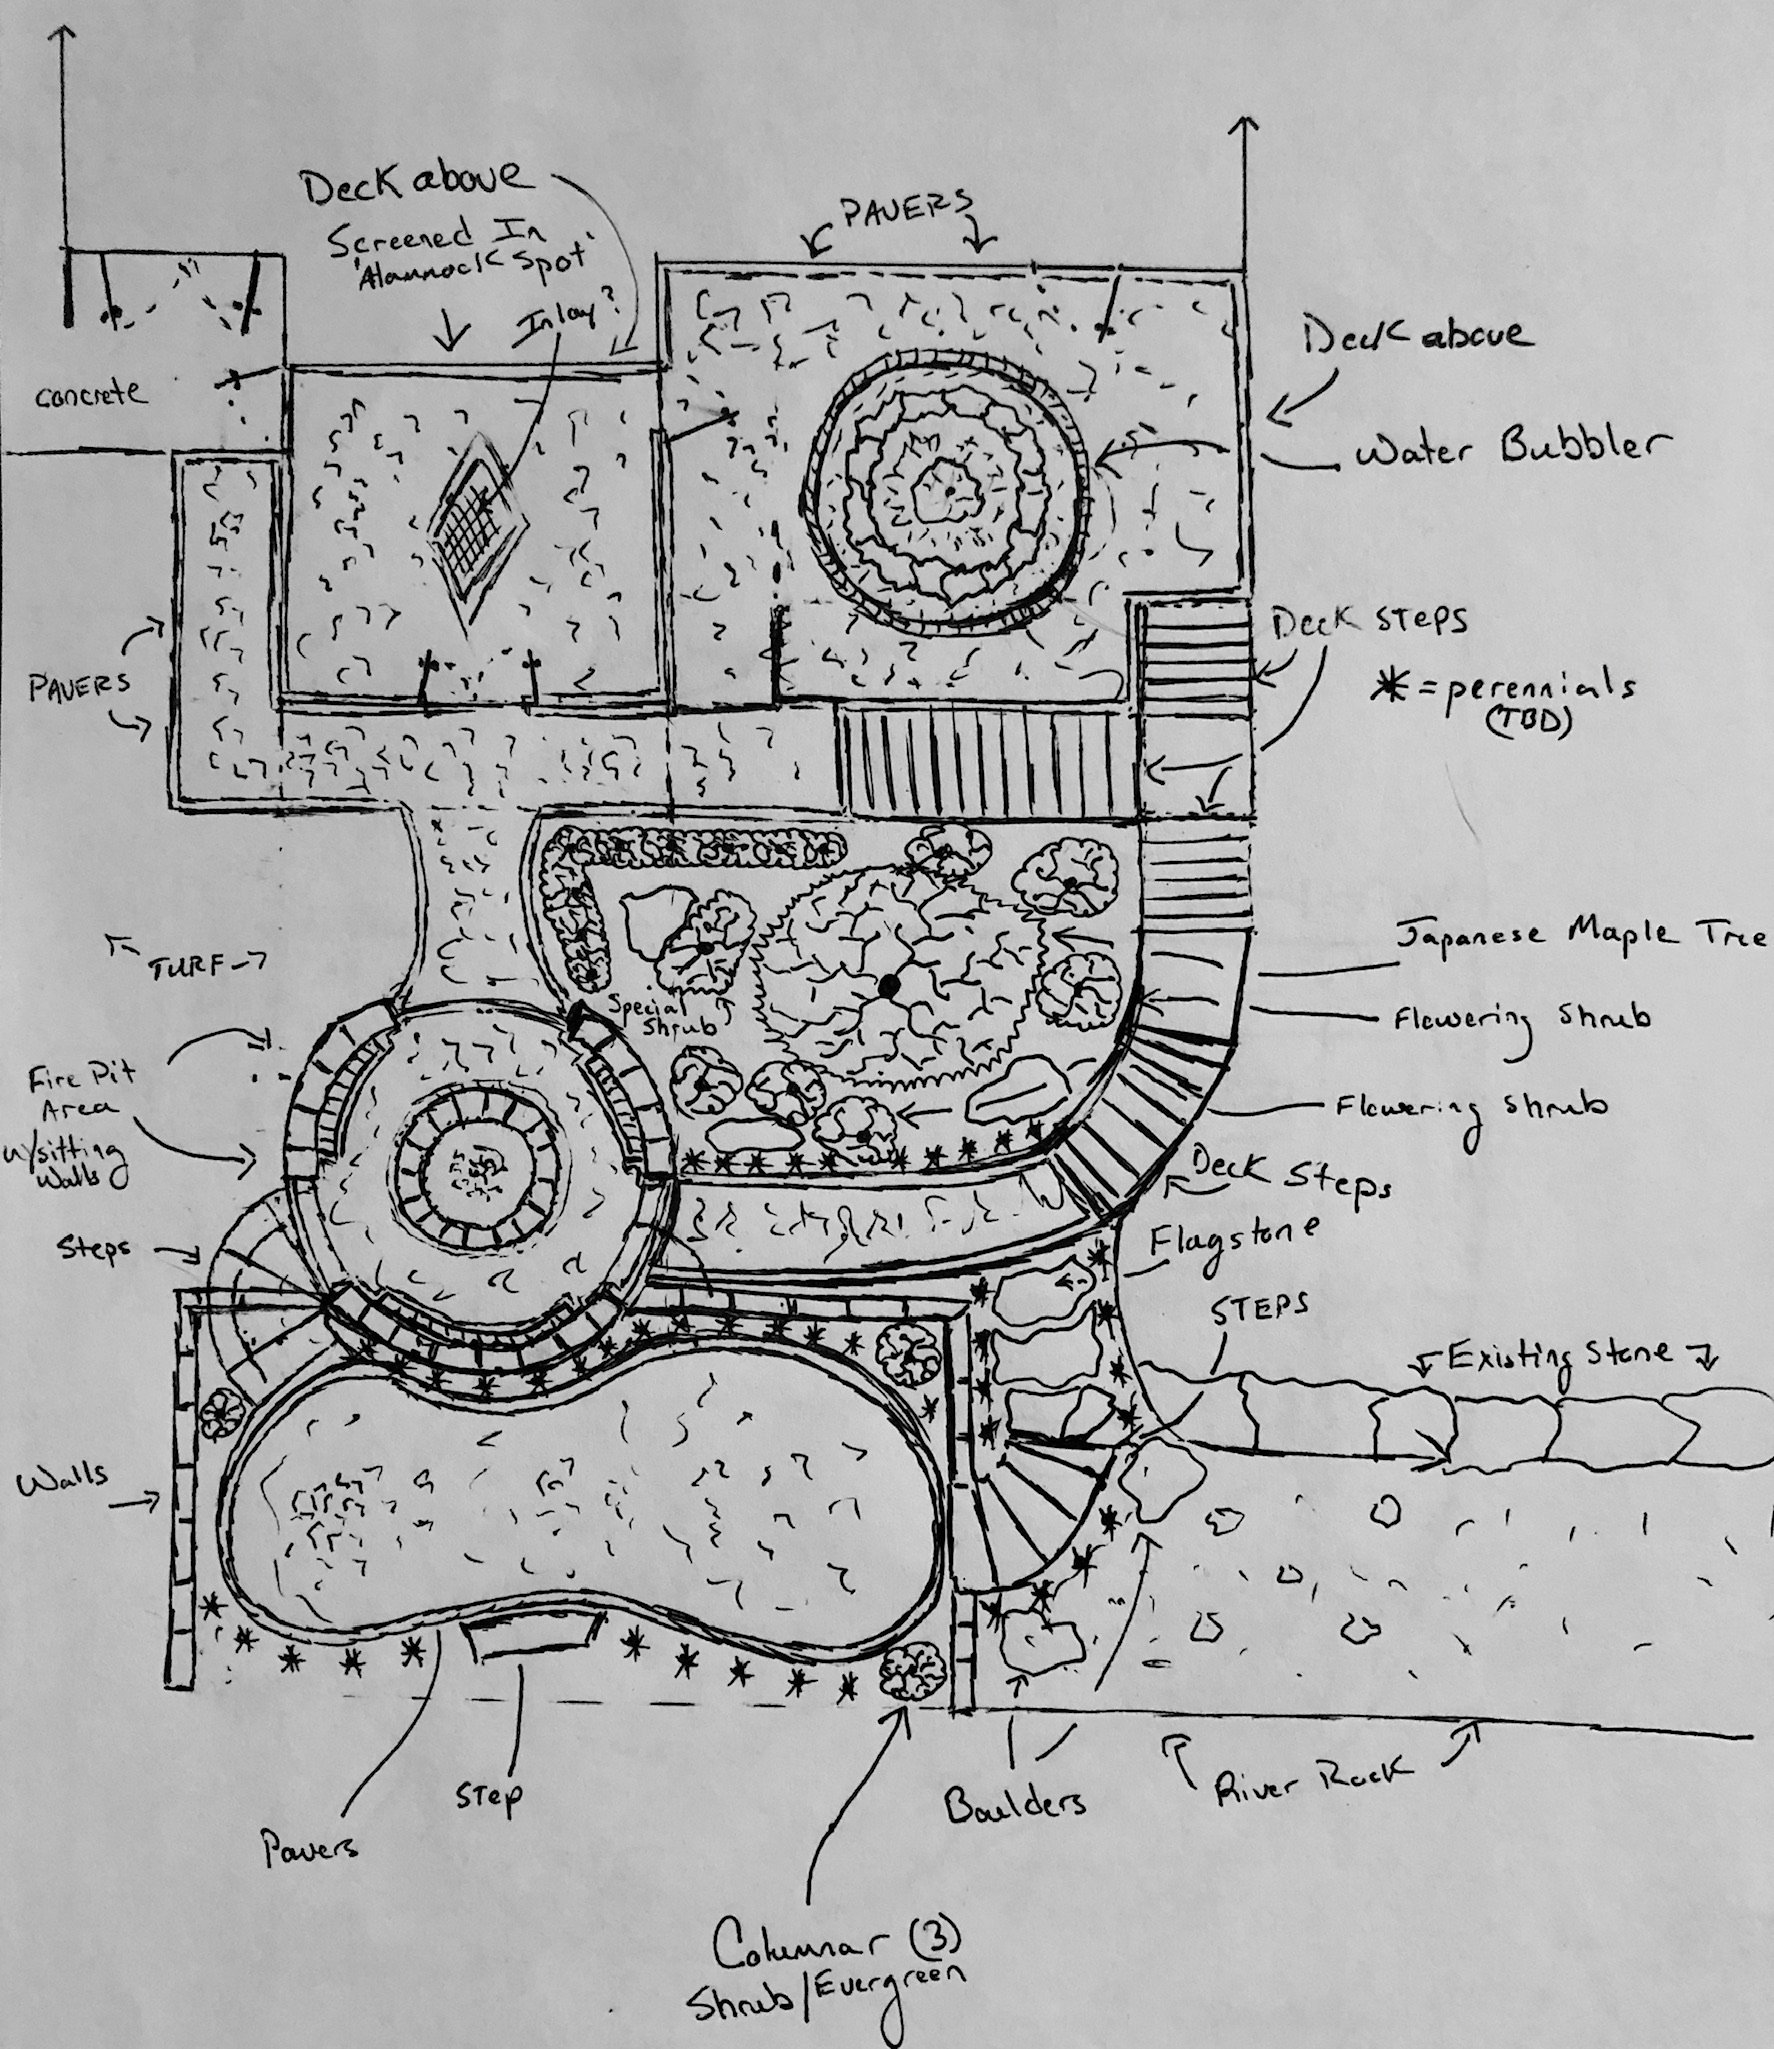 Deck above
Screened In
'Hammock Spot'
Inlay?
PAVERS
Deck above
concrete
Water Bubbler
Deck STEPS
* = perennials
(TBD)
PAVERS
TURF
Japanese Maple Tree
Special
Shrub
Flowering Shrub
Fire Pit
Area
w/sitting
Walls
Flowering Shrub
Deck Steps
Flagstone
Steps
STEPS
Existing Stone
Walls
River Rock
Boulders
STEP
Pavers
Columnar (3)
Shrub/Evergreen